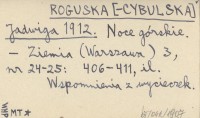 ROGUSKA [-CYBULSKA]
Jadwiga 1912. Noce górskie.
– Ziemia (Warszawa) 3,
nr 24-25: 406-411, il.
Wspomnienia z wycieczek.
MT*